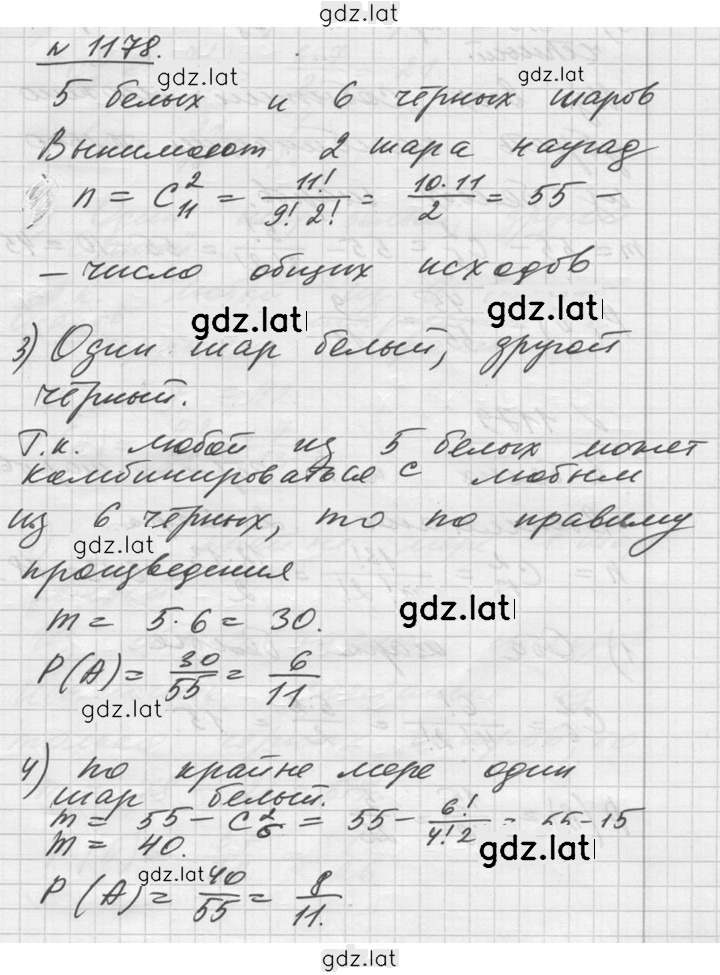 gdz.lat
№ 1178.
gdz.lat gdz.lat
5 белых и 6 чёрных шаров
Вынимают 2 шара наугад
n = C₁₁² = 11!/9! 2! = 10·11/2 = 55 –
– число общих исходов
gdz.lat gdz.lat
3) Один шар белый, другой
чёрный.
Т.к. любой из 5 белых может
комбинироваться с любым
из 6 чёрных, то по правилу
gdz.lat
произведения
m = 5·6 = 30.
gdz.lat
P(A) = 30/55 = 6/11
gdz.lat
4) по крайне мере один
шар белый.
m = 55 – C₆² = 55 – 6!/4! 2 = 55-15
m = 40.
gdz.lat
gdz.lat
P(A) = 40/55 = 8/11.
gdz.lat